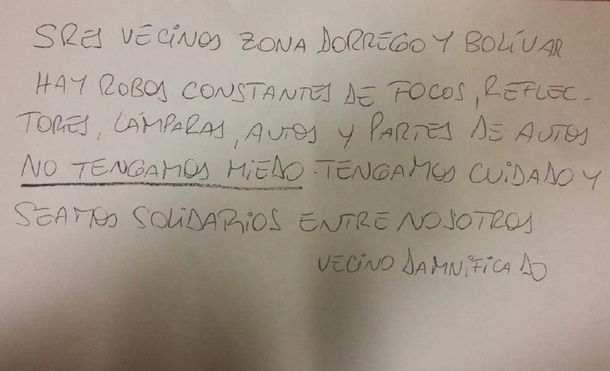 SRES VECINOS ZONA DORREGO Y BOLÍVAR
HAY ROBOS CONSTANTES DE FOCOS, REFLEC-
TORES, LÁMPARAS, AUTOS Y PARTES DE AUTOS
NO TENGAMOS MIEDO. TENGAMOS CUIDADO Y
SEAMOS SOLIDARIOS ENTRE NOSOTROS
VECINO DAMNIFICADO